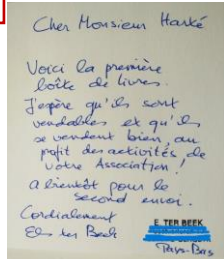 Cher Monsieur Harké
Voici la première
boîte de livres.
J'espère qu'ils sont
vendables et qu'ils
se vendent bien, au
pofit des activités de
votre Association !
a bientôt pour le
second envoi.
Cordialement
Els ter Beek
E. TER BEEK
Pays-Bas